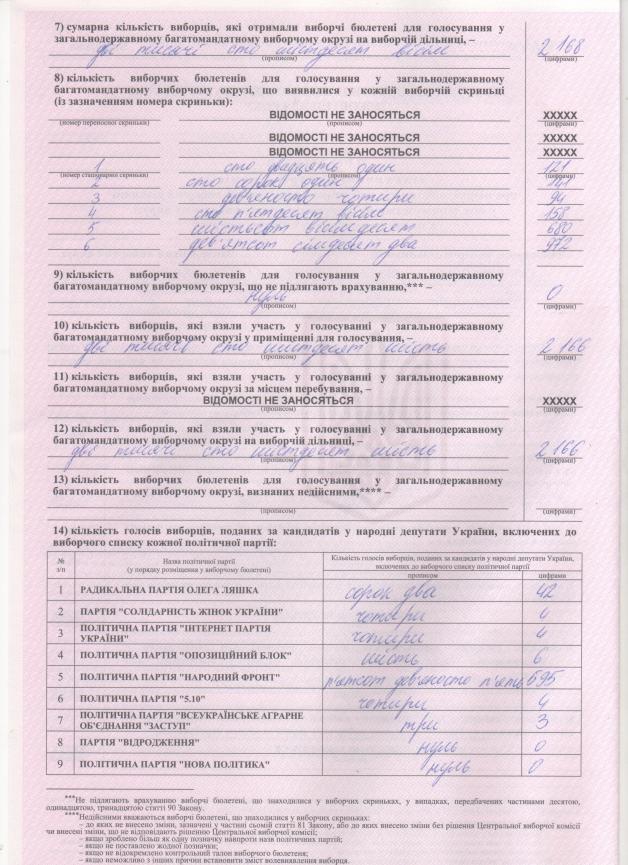 7) сумарна кількість виборців, які отримали виборчі бюлетені для голосування у
загальнодержавному багатомандатному виборчому окрузі на виборчій дільниці, –
дві тисячі сто шістдесят вісім 2 168
(прописом) (цифрами)
8) кількість виборчих бюлетенів для голосування у загальнодержавному
багатомандатному виборчому окрузі, що виявилися у кожній виборчій скриньці
(із зазначенням номера скриньки):
ВІДОМОСТІ НЕ ЗАНОСЯТЬСЯ XXXXX
(номер переносної скриньки) (прописом) (цифрами)
ВІДОМОСТІ НЕ ЗАНОСЯТЬСЯ XXXXX
ВІДОМОСТІ НЕ ЗАНОСЯТЬСЯ XXXXX
1 сто двадцять один 121
(номер стаціонарної скриньки) (прописом) (цифрами)
2 сто сорок один 141
3 дев'яносто чотири 94
4 сто п'ятдесят вісім 158
5 шістьсот вісімдесят 680
6 дев'ятсот сімдесят два 972
9) кількість виборчих бюлетенів для голосування у загальнодержавному
багатомандатному виборчому окрузі, що не підлягають врахуванню,*** –
нуль 0
(прописом) (цифрами)
10) кількість виборців, які взяли участь у голосуванні у загальнодержавному
багатомандатному виборчому окрузі у приміщенні для голосування, –
дві тисячі сто шістдесят шість 2 166
(прописом) (цифрами)
11) кількість виборців, які взяли участь у голосуванні у загальнодержавному
багатомандатному виборчому окрузі за місцем перебування, –
ВІДОМОСТІ НЕ ЗАНОСЯТЬСЯ XXXXX
(прописом) (цифрами)
12) кількість виборців, які взяли участь у голосуванні у загальнодержавному
багатомандатному виборчому окрузі на виборчій дільниці, –
дві тисячі сто шістдесят шість 2 166
(прописом) (цифрами)
13) кількість виборчих бюлетенів для голосування у загальнодержавному
багатомандатному виборчому окрузі, визнаних недійсними,**** –
(прописом) (цифрами)
14) кількість голосів виборців, поданих за кандидатів у народні депутати України, включених до
виборчого списку кожної політичної партії:
№ з/п Назва політичної партії (у порядку розміщення у виборчому бюлетені) Кількість голосів виборців, поданих за кандидатів у народні депутати України, включених до виборчого списку політичної партії
прописом цифрами
1 РАДИКАЛЬНА ПАРТІЯ ОЛЕГА ЛЯШКА сорок два 42
2 ПАРТІЯ "СОЛІДАРНІСТЬ ЖІНОК УКРАЇНИ" чотири 4
3 ПОЛІТИЧНА ПАРТІЯ "ІНТЕРНЕТ ПАРТІЯ УКРАЇНИ" чотири 4
4 ПОЛІТИЧНА ПАРТІЯ "ОПОЗИЦІЙНИЙ БЛОК" шість 6
5 ПОЛІТИЧНА ПАРТІЯ "НАРОДНИЙ ФРОНТ" п'ятсот дев'яносто п'ять 595
6 ПОЛІТИЧНА ПАРТІЯ "5.10" чотири 4
7 ПОЛІТИЧНА ПАРТІЯ "ВСЕУКРАЇНСЬКЕ АГРАРНЕ ОБ'ЄДНАННЯ "ЗАСТУП" три 3
8 ПАРТІЯ "ВІДРОДЖЕННЯ" нуль 0
9 ПОЛІТИЧНА ПАРТІЯ "НОВА ПОЛІТИКА" нуль 0
***Не підлягають врахуванню виборчі бюлетені, що знаходилися у виборчих скриньках, у випадках, передбачених частинами десятою,
одинадцятою, тринадцятою статті 90 Закону.
****Недійсними вважаються виборчі бюлетені, що знаходилися у виборчих скриньках:
– до яких не внесено зміни, зазначені у частині сьомій статті 81 Закону, або до яких внесено зміни без рішення Центральної виборчої комісії
чи внесені зміни, що не відповідають рішенню Центральної виборчої комісії;
– якщо зроблено більш як одну позначку навпроти назв політичних партій;
– якщо не поставлено жодної позначки;
– якщо не відокремлено контрольний талон виборчого бюлетеня;
– якщо неможливо з інших причин встановити зміст волевиявлення виборця.